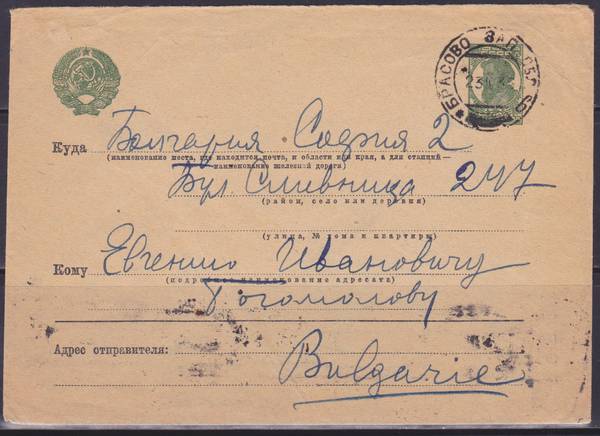 БРАСОВО ЗАП. ОБЛ.
Куда Болгария София 2
(наименование места, где находится почта, и области или края, а для станций —
наименование железной дороги)
Бул Сливница 247
(район, село или деревня)
(улица, № дома и квартиры)
Кому Евгению Ивановичу
(подробное наименование адресата)
Богомолову
Адрес отправителя:
Bulgarie